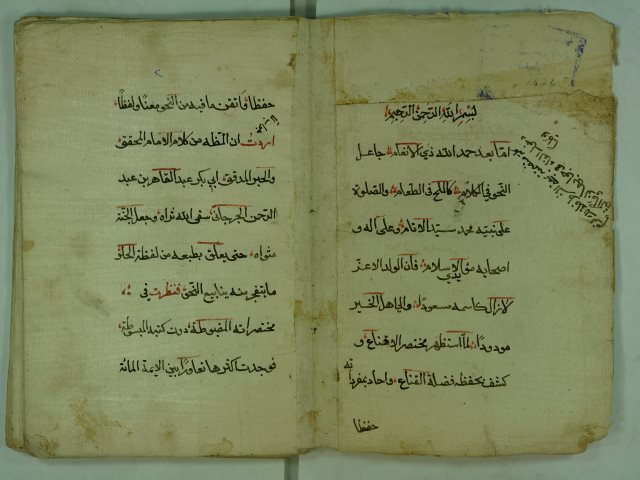 بسم الله الرحمن الرحيم
اما بعد حمد الله ذي الانعام جاعل
النحو في الكلام كالملح في الطعام والصلوة
على نبيه محمد سيد الانام وعلى آله و
اصحابه مؤيدي الاسلام فان الولد الاعز
لازال كاسمه مسعودا والى اهل الخير
مودودا لما استظهر مختصر الاقناع و
كشف بحفظه فضلة القناع واحاط بمفرداته
حفظا
حفظا واتقن ما فيه من النحو معنا ولفظا
اردت ان المظه من كلام الامام المحقق
والحبر المدقق ابي بكر عبد القاهر بن عبد
الرحمن الجرجاني سقى الله ثراه وجعل الجنة
مثواه حتى يعلق بطبعه من لفظه الحلو
ما يتفجر منه ينابيع النحو فنظرت في
مختصراته المضبوطة دون كتبه المبسوطة
فوجدت اكثرها تعاورا بين الايمة المائة